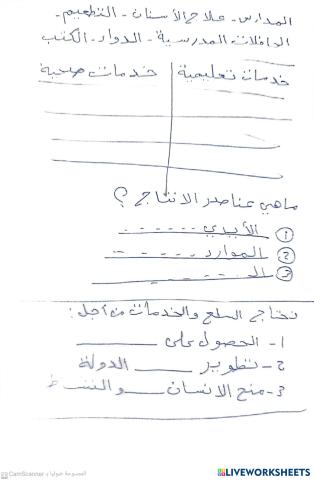 المدارس - علاج الأسنان - التطعيم -
الحافلات المدرسية - الدواء - الكتب
خدمات تعليمية | خدمات صحية
ماهي عناصر الانتاج ؟
① الأيدي ......
② الموارد ......
③ الـ ......
نحتاج السلع والخدمات من أجل :
1- الحصول على ______
2- تطوير ______ الدولة
3- منح الانسان ______ والنشاط
الممسوحة ضوئيا بـ CamScanner
LIVEWORKSHEETS